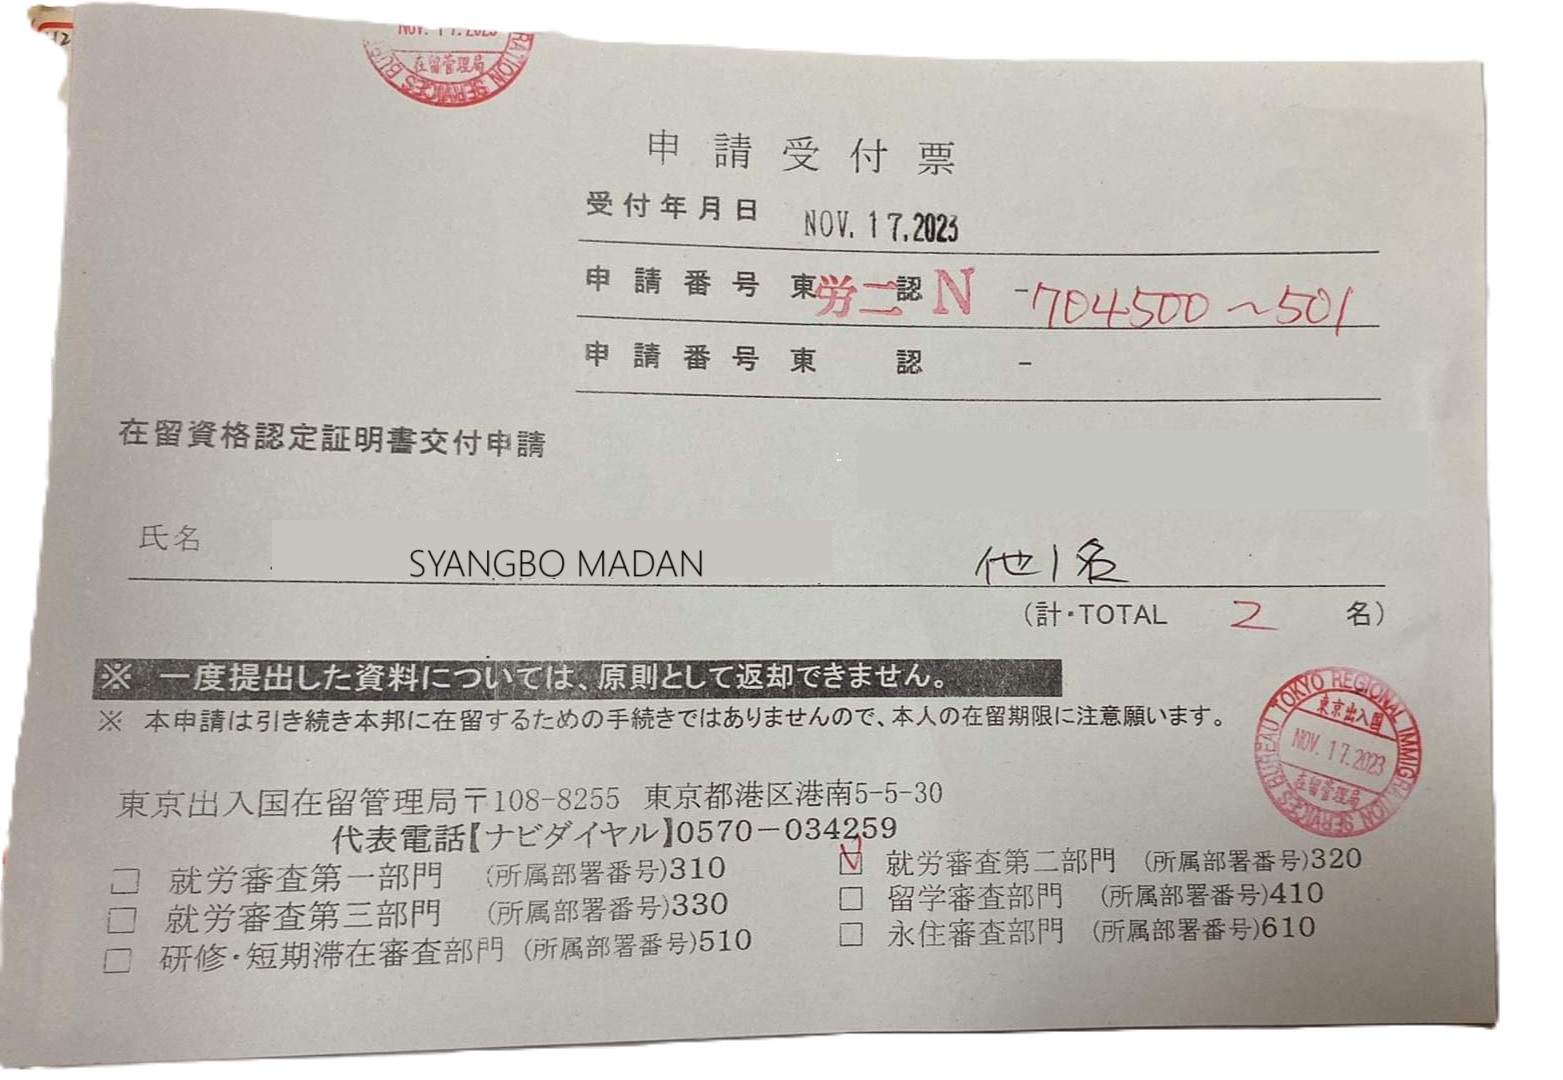 NOV. 17.2023
在留管理局
RATION SERVICES BU
申請受付票
受付年月日 NOV. 17.2023
申請番号 東労二認N -704500～501
申請番号 東 認 -
在留資格認定証明書交付申請
氏名 SYANGBO MADAN 他1名
(計・TOTAL 2 名)
※ 一度提出した資料については、原則として返却できません。
※ 本申請は引き続き本邦に在留するための手続きではありませんので、本人の在留期限に注意願います。
TOKYO REGIONAL IMMIGRATION SERVICES BUREAU
東京出入国
NOV. 17.2023
在留管理局
東京出入国在留管理局〒108-8255 東京都港区港南5-5-30
代表電話【ナビダイヤル】0570－034259
□ 就労審査第一部門 (所属部署番号)310
☑ 就労審査第二部門 (所属部署番号)320
□ 就労審査第三部門 (所属部署番号)330
□ 留学審査部門 (所属部署番号)410
□ 研修・短期滞在審査部門 (所属部署番号)510
□ 永住審査部門 (所属部署番号)610